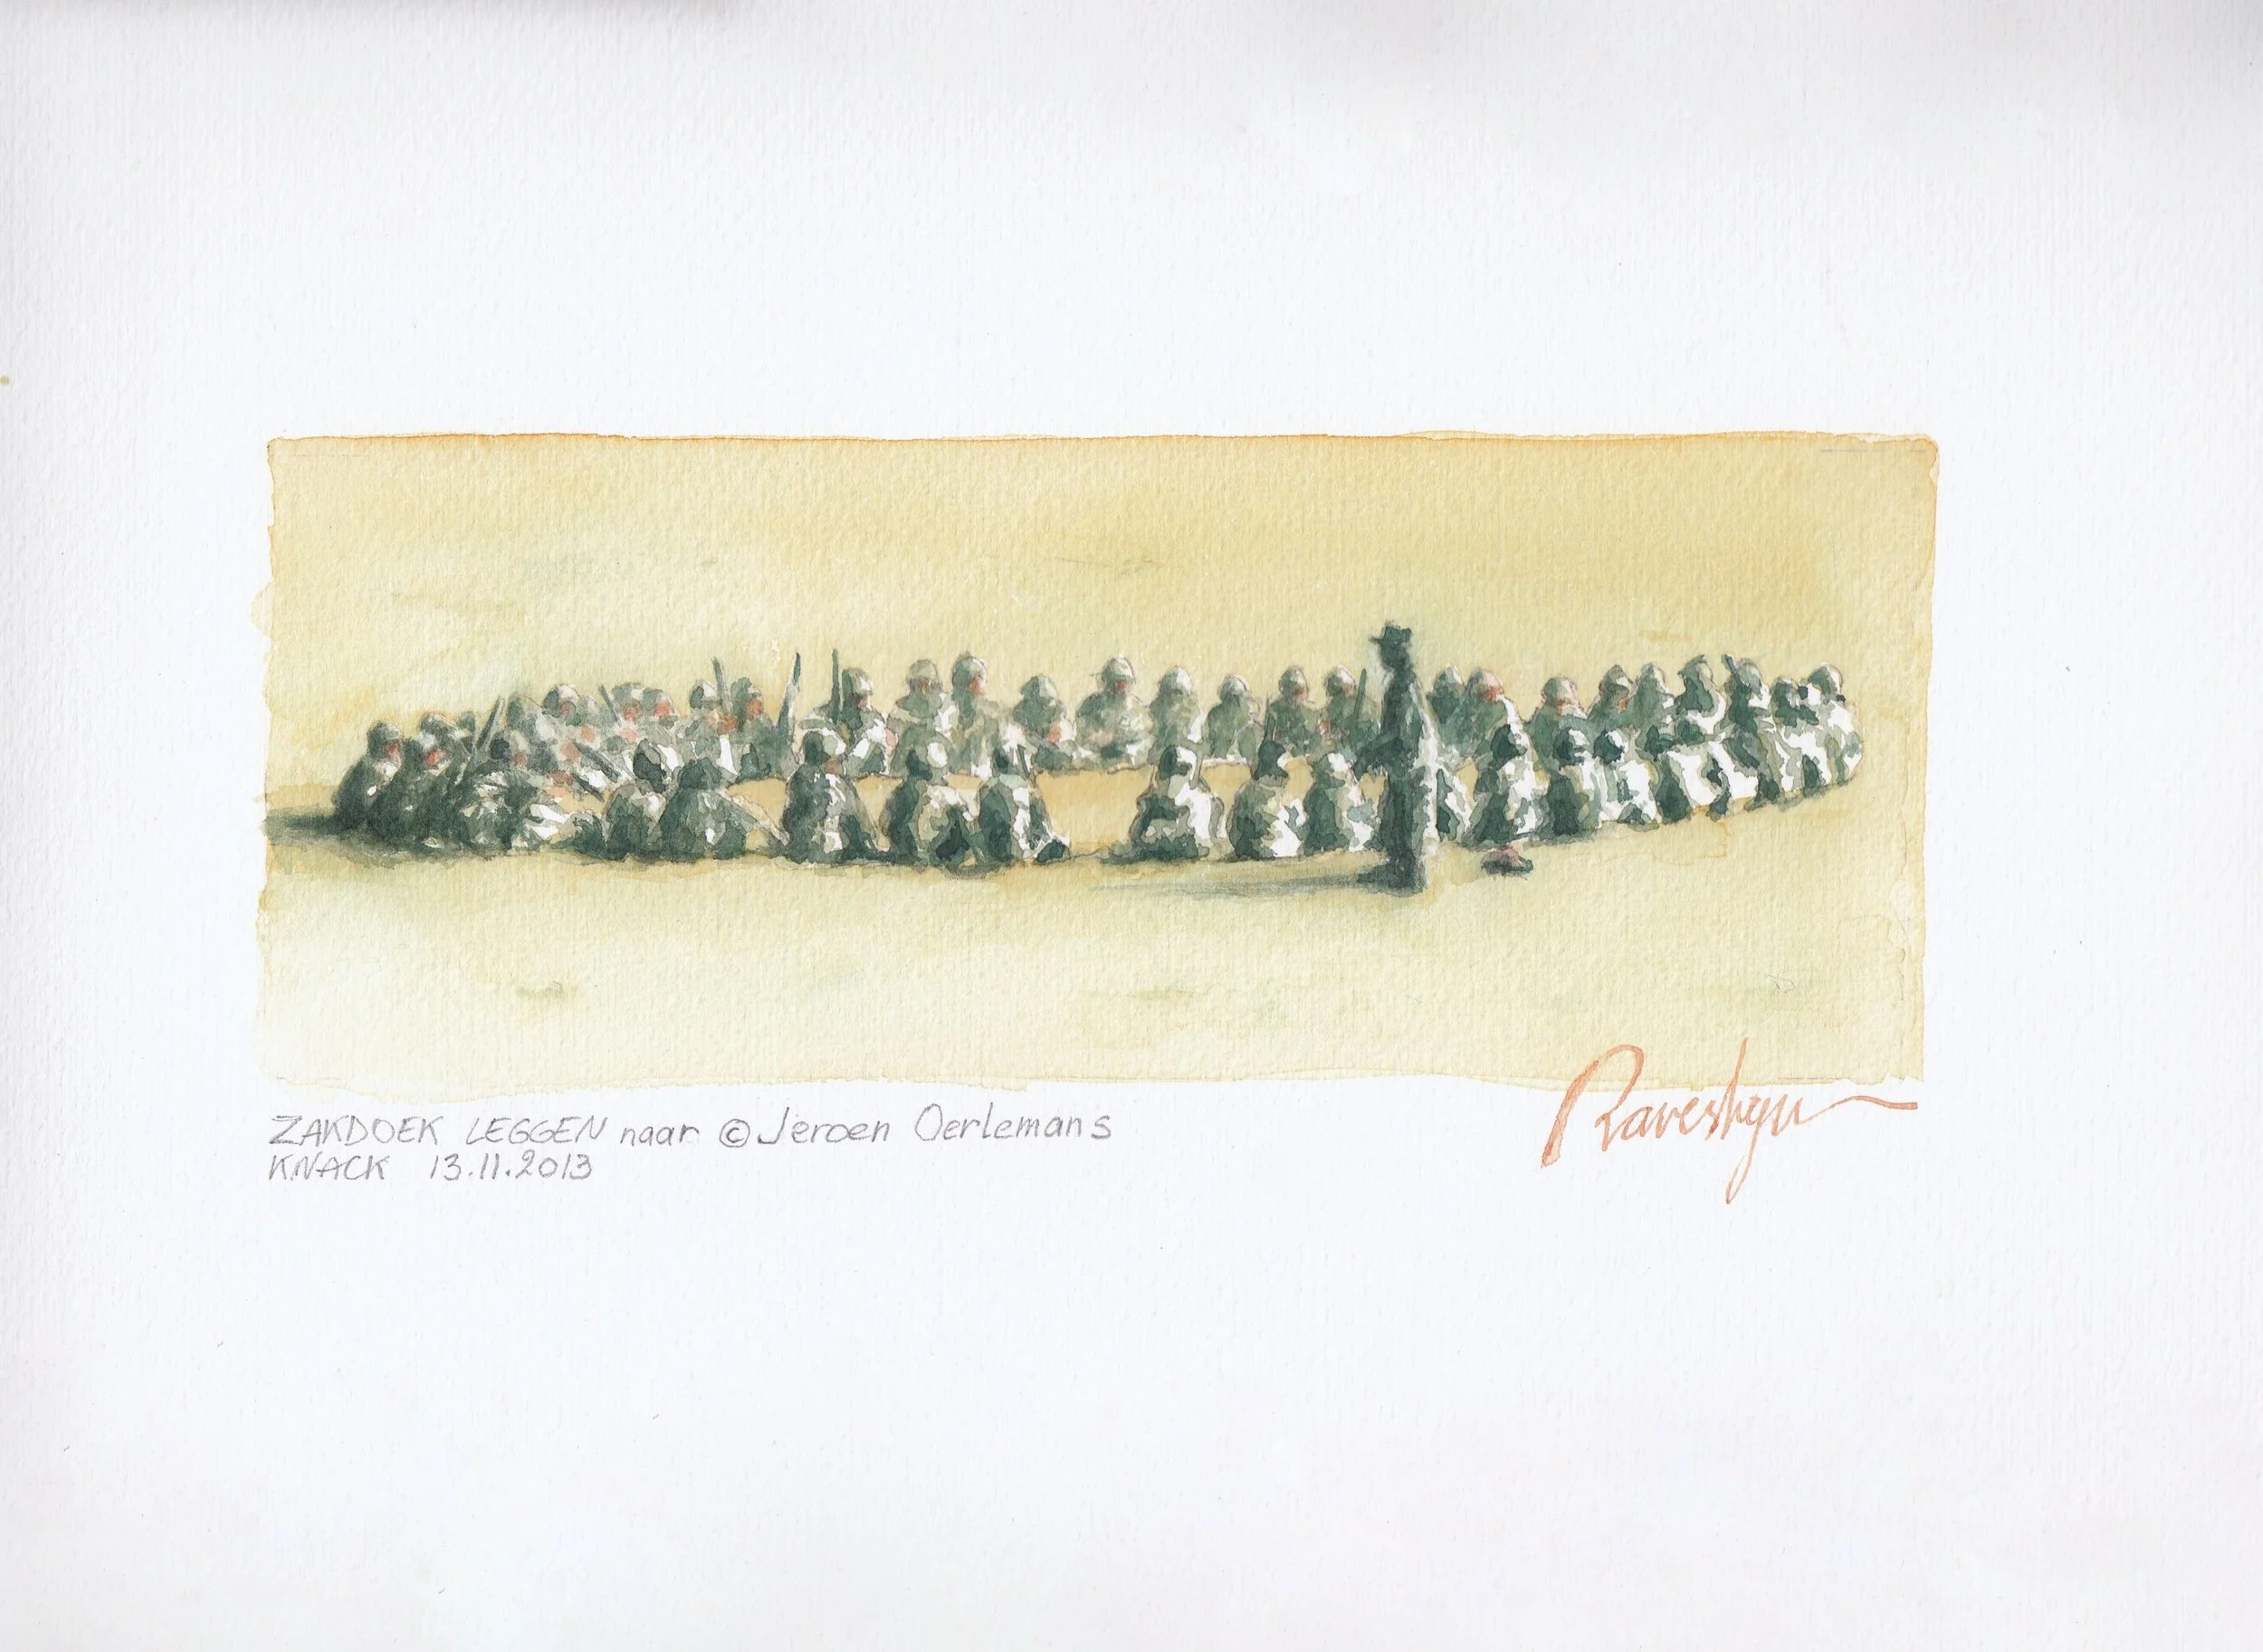 ZAKDOEK LEGGEN naar © Jeroen Oerlemans
KNACK 13.11.2013